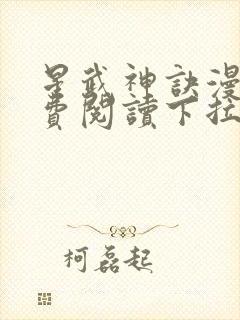 星武神訣漫
費閱讀下拉
柯磊起